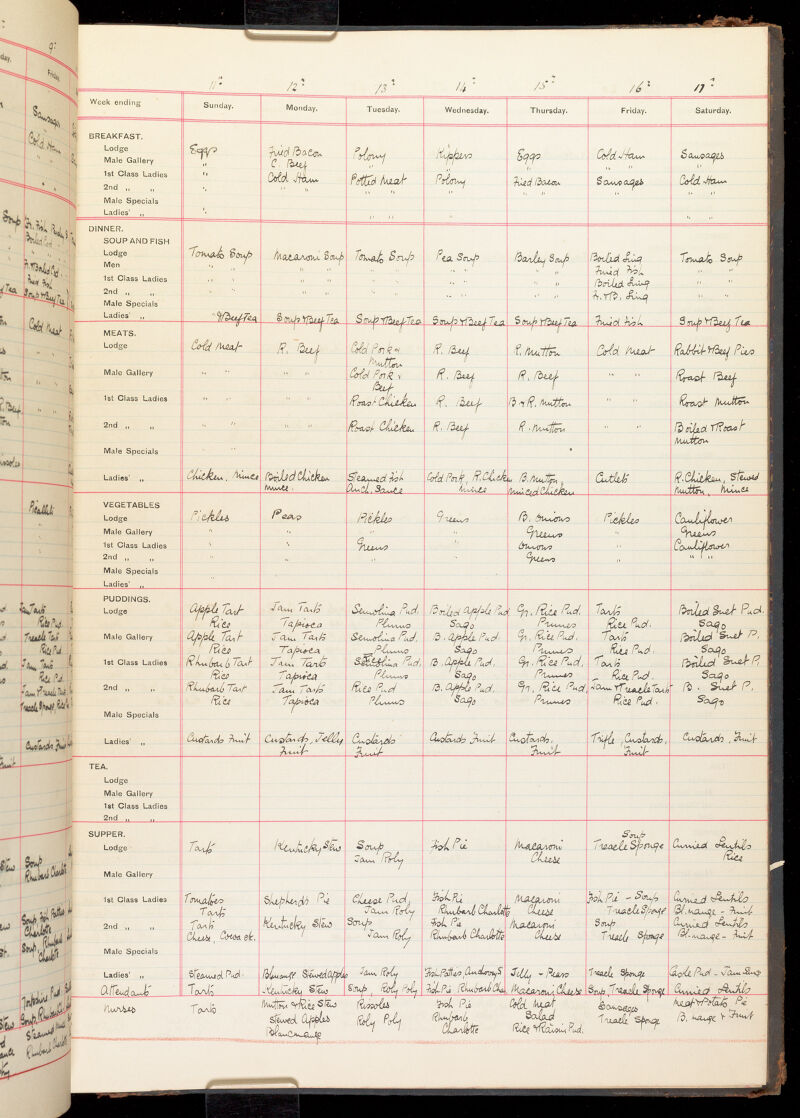 11th 12th 13th 14th 15th 16th 17th
Week ending Sunday. Monday. Tuesday. Wednesday. Thursday. Friday. Saturday.
BREAKFAST.
Lodge Eggs Fried Bacon Polony Kippers Eggs Cold Ham Sausages
Male Gallery " C. Beef " "
1st Class Ladies " Cold Ham Potted Meat Polony Fried Bacon Sausages Cold Ham
2nd " " " " " " " " " " " "
Male Specials
Ladies' " " " " " " "
DINNER.
SOUP AND FISH
Lodge Tomato Soup Macaroni Soup Tomato Soup Pea Soup Barley Soup Boiled Ling Tomato Soup
Men " " " " " " " " " " Fried Fish " "
1st Class Ladies " " " " " " " " " " Boiled Ling " "
2nd " " " " " " " " " " " " F. & B. Ling " "
Male Specials
Ladies' " " & Beef Tea Soup & Beef Tea Soup & Beef Tea Soup & Beef Tea Soup & Beef Tea Fried Fish Soup & Beef Tea
MEATS.
Lodge Cold Meat R. Beef Cold Pork & R. Beef R. Mutton Cold Meat Rabbit & Beef Pies
Mutton
Male Gallery " " " " Cold Pork & R. Beef R. Beef " " Roast Beef
Beef
1st Class Ladies " " " " Roast Chicken R. Beef B & R. Mutton " " Roast Mutton
2nd " " " " " " Roast Chicken R. Beef R. Mutton " " Boiled & Roast
Mutton
Male Specials
Ladies' " Chicken, Mince Boiled Chicken Steamed Fish Cold Pork, R. Chicken B. Mutton, Cutlets R. Chicken, Stewed
Mince. Anch. Sauce Mince Minced Chicken Mutton, Mince
VEGETABLES
Lodge Pickles Peas Pickles Greens B. Onions Pickles Cauliflower
Male Gallery " " " " Greens " Greens
1st Class Ladies " " Greens " Onions " Cauliflower
2nd " " " " " " Greens " " "
Male Specials
Ladies' "
PUDDINGS.
Lodge Apple Tart Jam Tarts Semolina Pud. Boiled Apple Pud Gr. Rice Pud. Tarts Boiled Suet Pud.
Rice Tapioca Plums Sago Prunes Rice Pud. Sago
Male Gallery Apple Tart Jam Tarts Semolina Pud. B. Apple Pud. Gr. Rice Pud. Tarts Boiled Suet P.
Rice Tapioca Plums Sago Prunes Rice Pud. Sago
1st Class Ladies Rhubarb Tart Jam Tarts Semolina Pud. B. Apple Pud. Gr. Rice Pud. Tarts Boiled Suet P.
Rice Tapioca Plums Sago Prunes Rice Pud. Sago
2nd " " Rhubarb Tart Jam Tarts Rice Pud B. Apple Pud. Gr. Rice Pud. Jam & Treacle Tarts B. Suet P.
Rice Tapioca Plums Sago Prunes Rice Pud. Sago
Male Specials
Ladies' " Custards Fruit Custards, Jelly Custards Custards Fruit Custards, Trifle, Custards, Custards, Fruit
Fruit Fruit Fruit Fruit
TEA.
Lodge
Male Gallery
1st Class Ladies
2nd " "
SUPPER.
Soup
Lodge Tarts Kentucky Stew Soup Fish Pie Macaroni Treacle Sponge Curried Lentils
Jam Roly Cheese Rice
Male Gallery
1st Class Ladies Tomatoes Shepherds Pie Cheese Pud. Fish Pie Macaroni Fish Pie - Soup Curried Lentils
Tarts Jam Roly Rhubarb Charlotte Cheese Treacle Sponge Bl. mange - Fruit
2nd " " Tarts Kentucky Stew Soup Fish Pie Macaroni Soup Curried Lentils
Cheese, Cocoa etc. Jam Roly Rhubarb Charlotte Cheese Treacle Sponge Bl. mange - Fruit
Male Specials
Ladies' " Steamed Pud. Blmange Stewed apples Jam Roly Jelly - Pears Treacle Sponge Castle Pud - Jam Sauce
Attendants Tarts Kentucky Stew Soup Roly Poly Fish Pie Rhubarb Char. Macaroni Cheese Soup, Treacle Sponge Curried Lentils
Nurses Tarts Mutton & Rice Stew Rissoles Fish Pie Cold Meat Sausages Meat & Potato Pie
Stewed Apples Roly Poly Rhubarb Salad Treacle Sponge B. mange & Fruit
Blancmange Charlotte Rice & Raisin Pud.